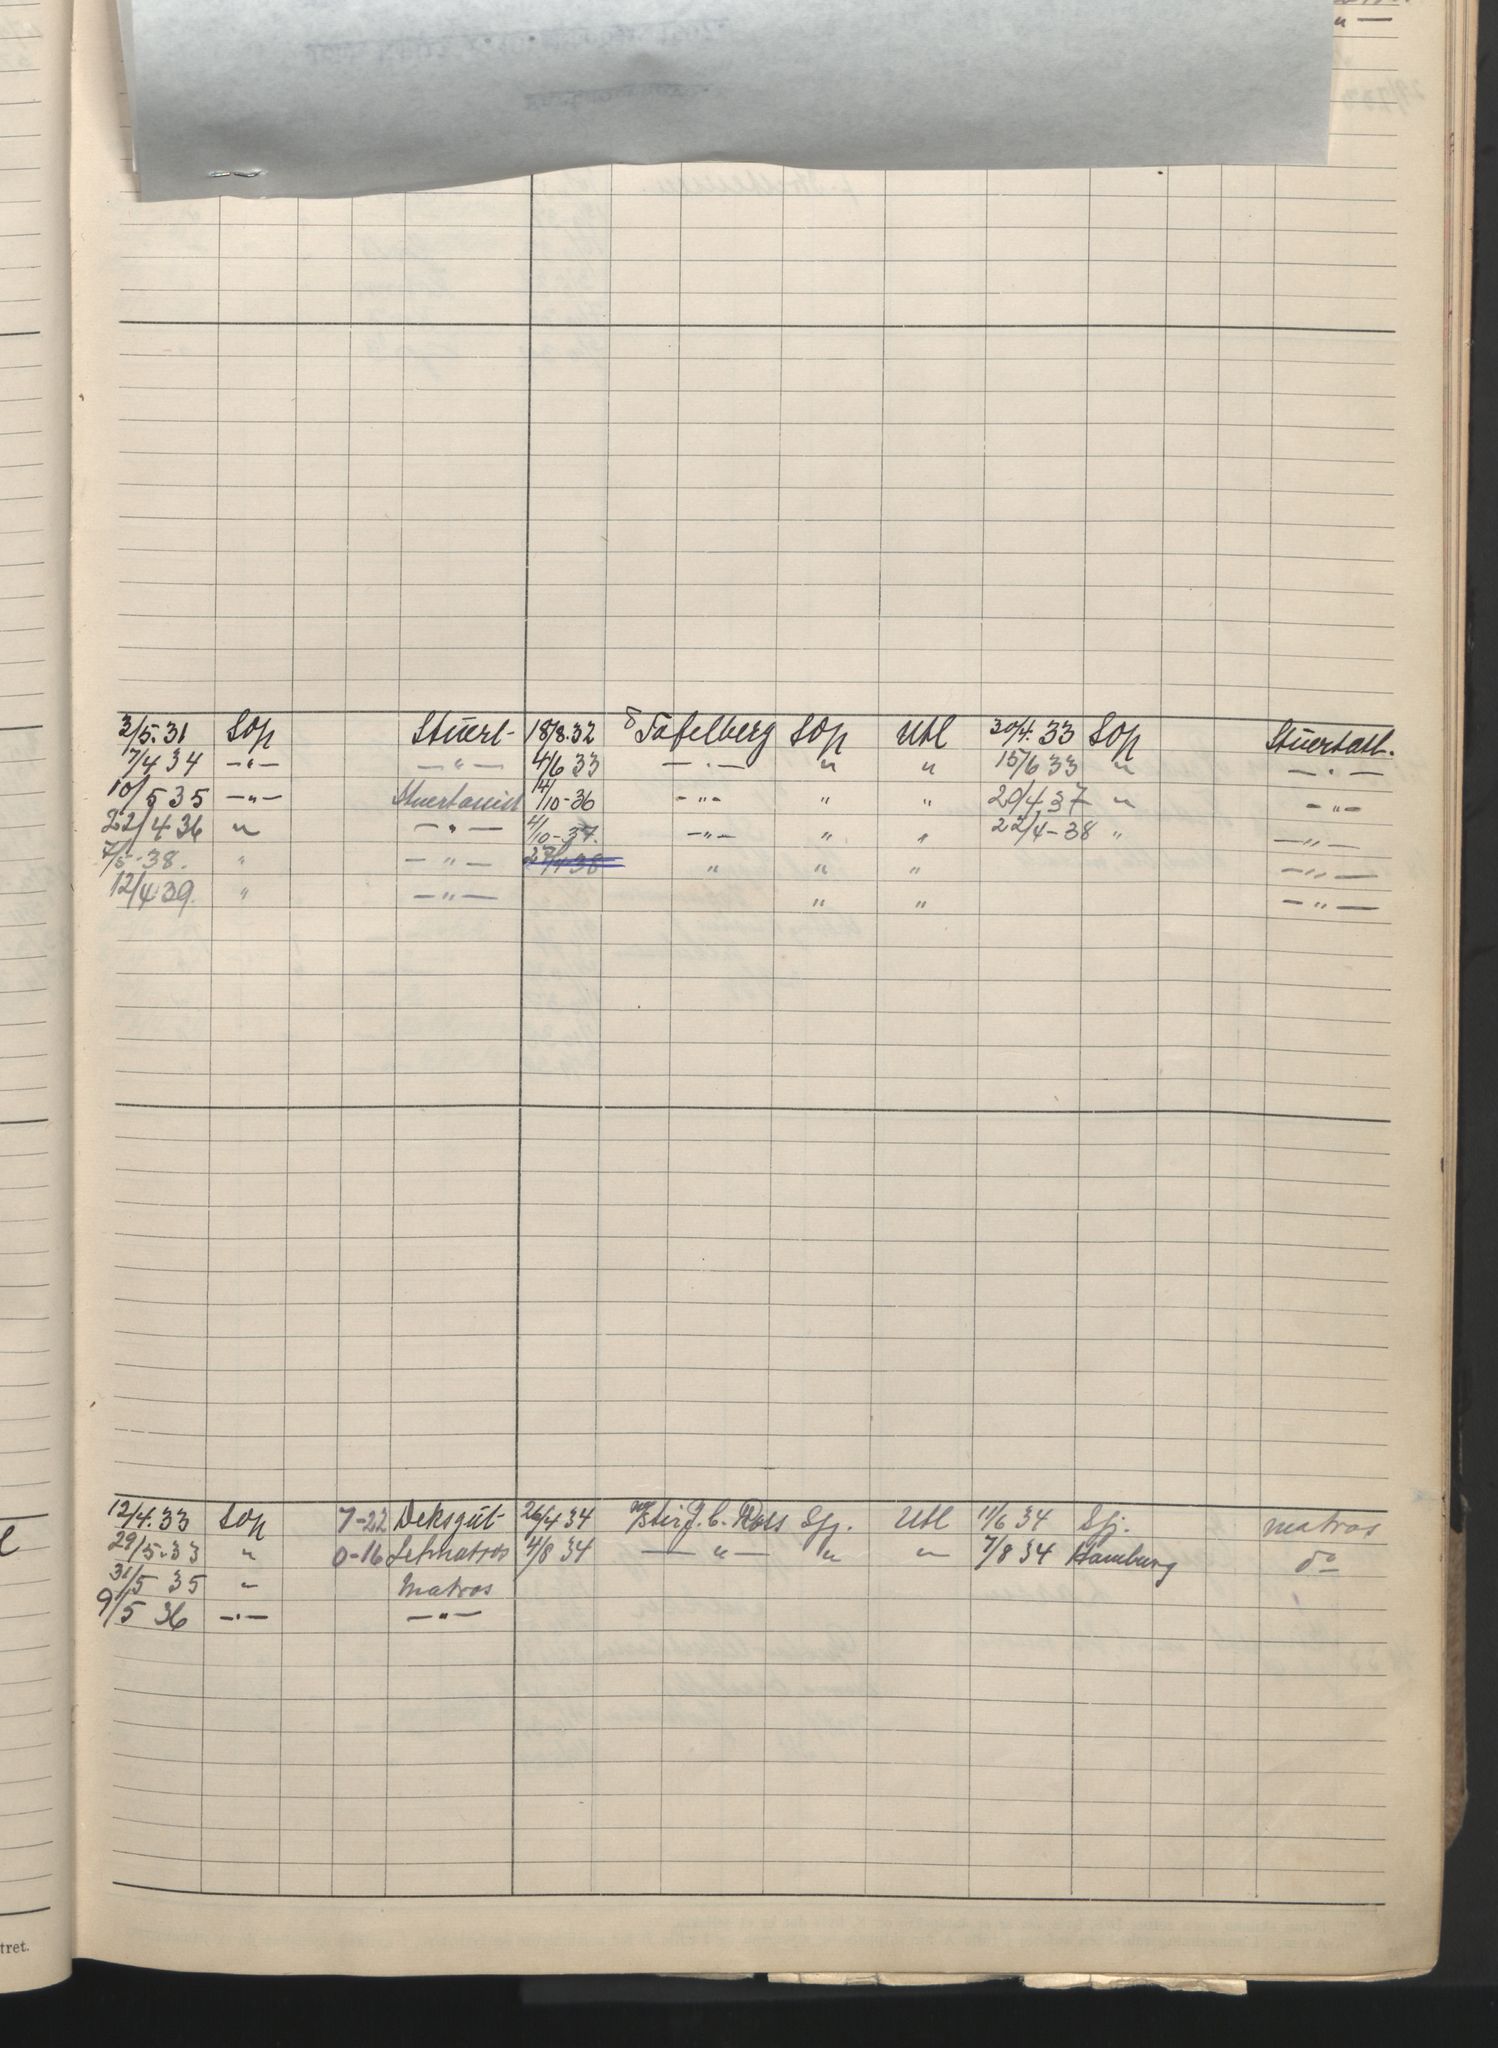 2/5.31 Sop Stuert- 18/8.32 S Tafelberg Sop Utl 30/4.33 Sop Stuertass.
7/4 34 —"— —"— 4/6 33 —"— " " 15/6 33 " —"—
10/5 35 —"— Stuertassist 14/10-36 —"— " " 20/4 37 " —"—
22/4 36 " —"— 4/10-37. —"— " " 22/4-38 " —"—
7/5-38. " —"— " " " —"—
12/4 39. " —"— " " —"—
12/4.33 Sop 7-22 Deksgut- 26/4 34 Sir J. C. Ross Sfj. Utl 11/6 34 Sfj. matros
29/5.33 " 0-16 Letmatros 4/8 34 —"— " " 7/8 34 Hamburg do
31/5 35 " Matros
9/5 36 —"— —"—
tret.